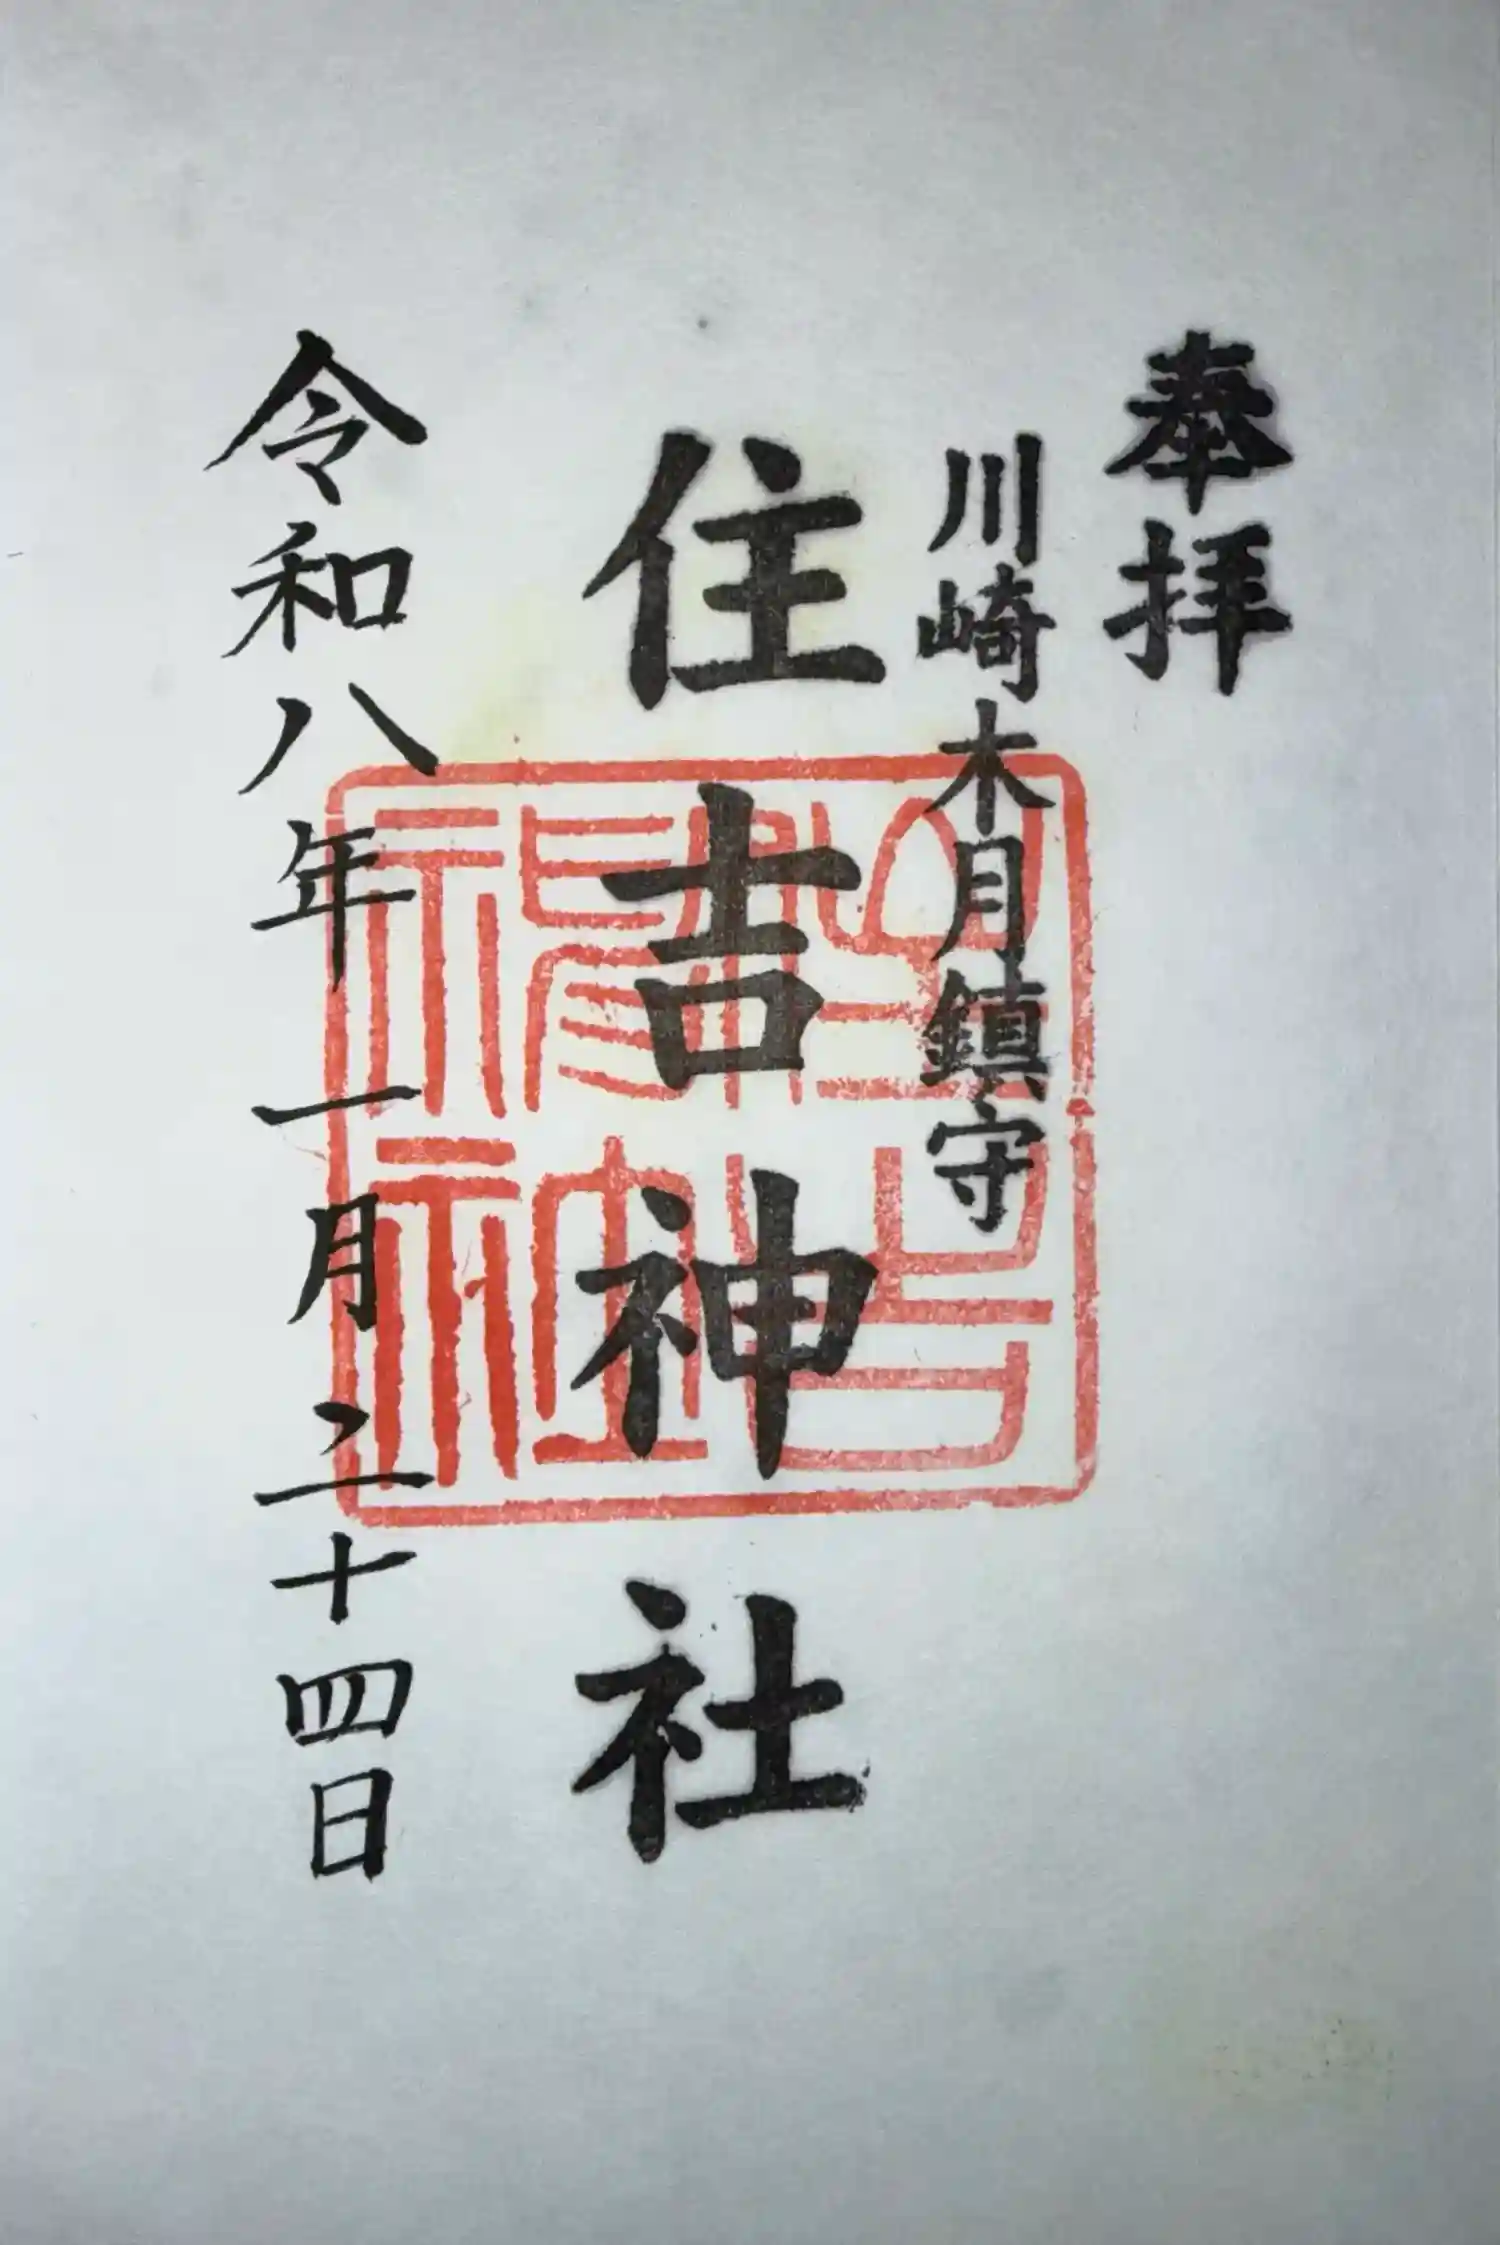 奉拝
川崎木月鎮守
住吉神社
令和八年一月二十四日